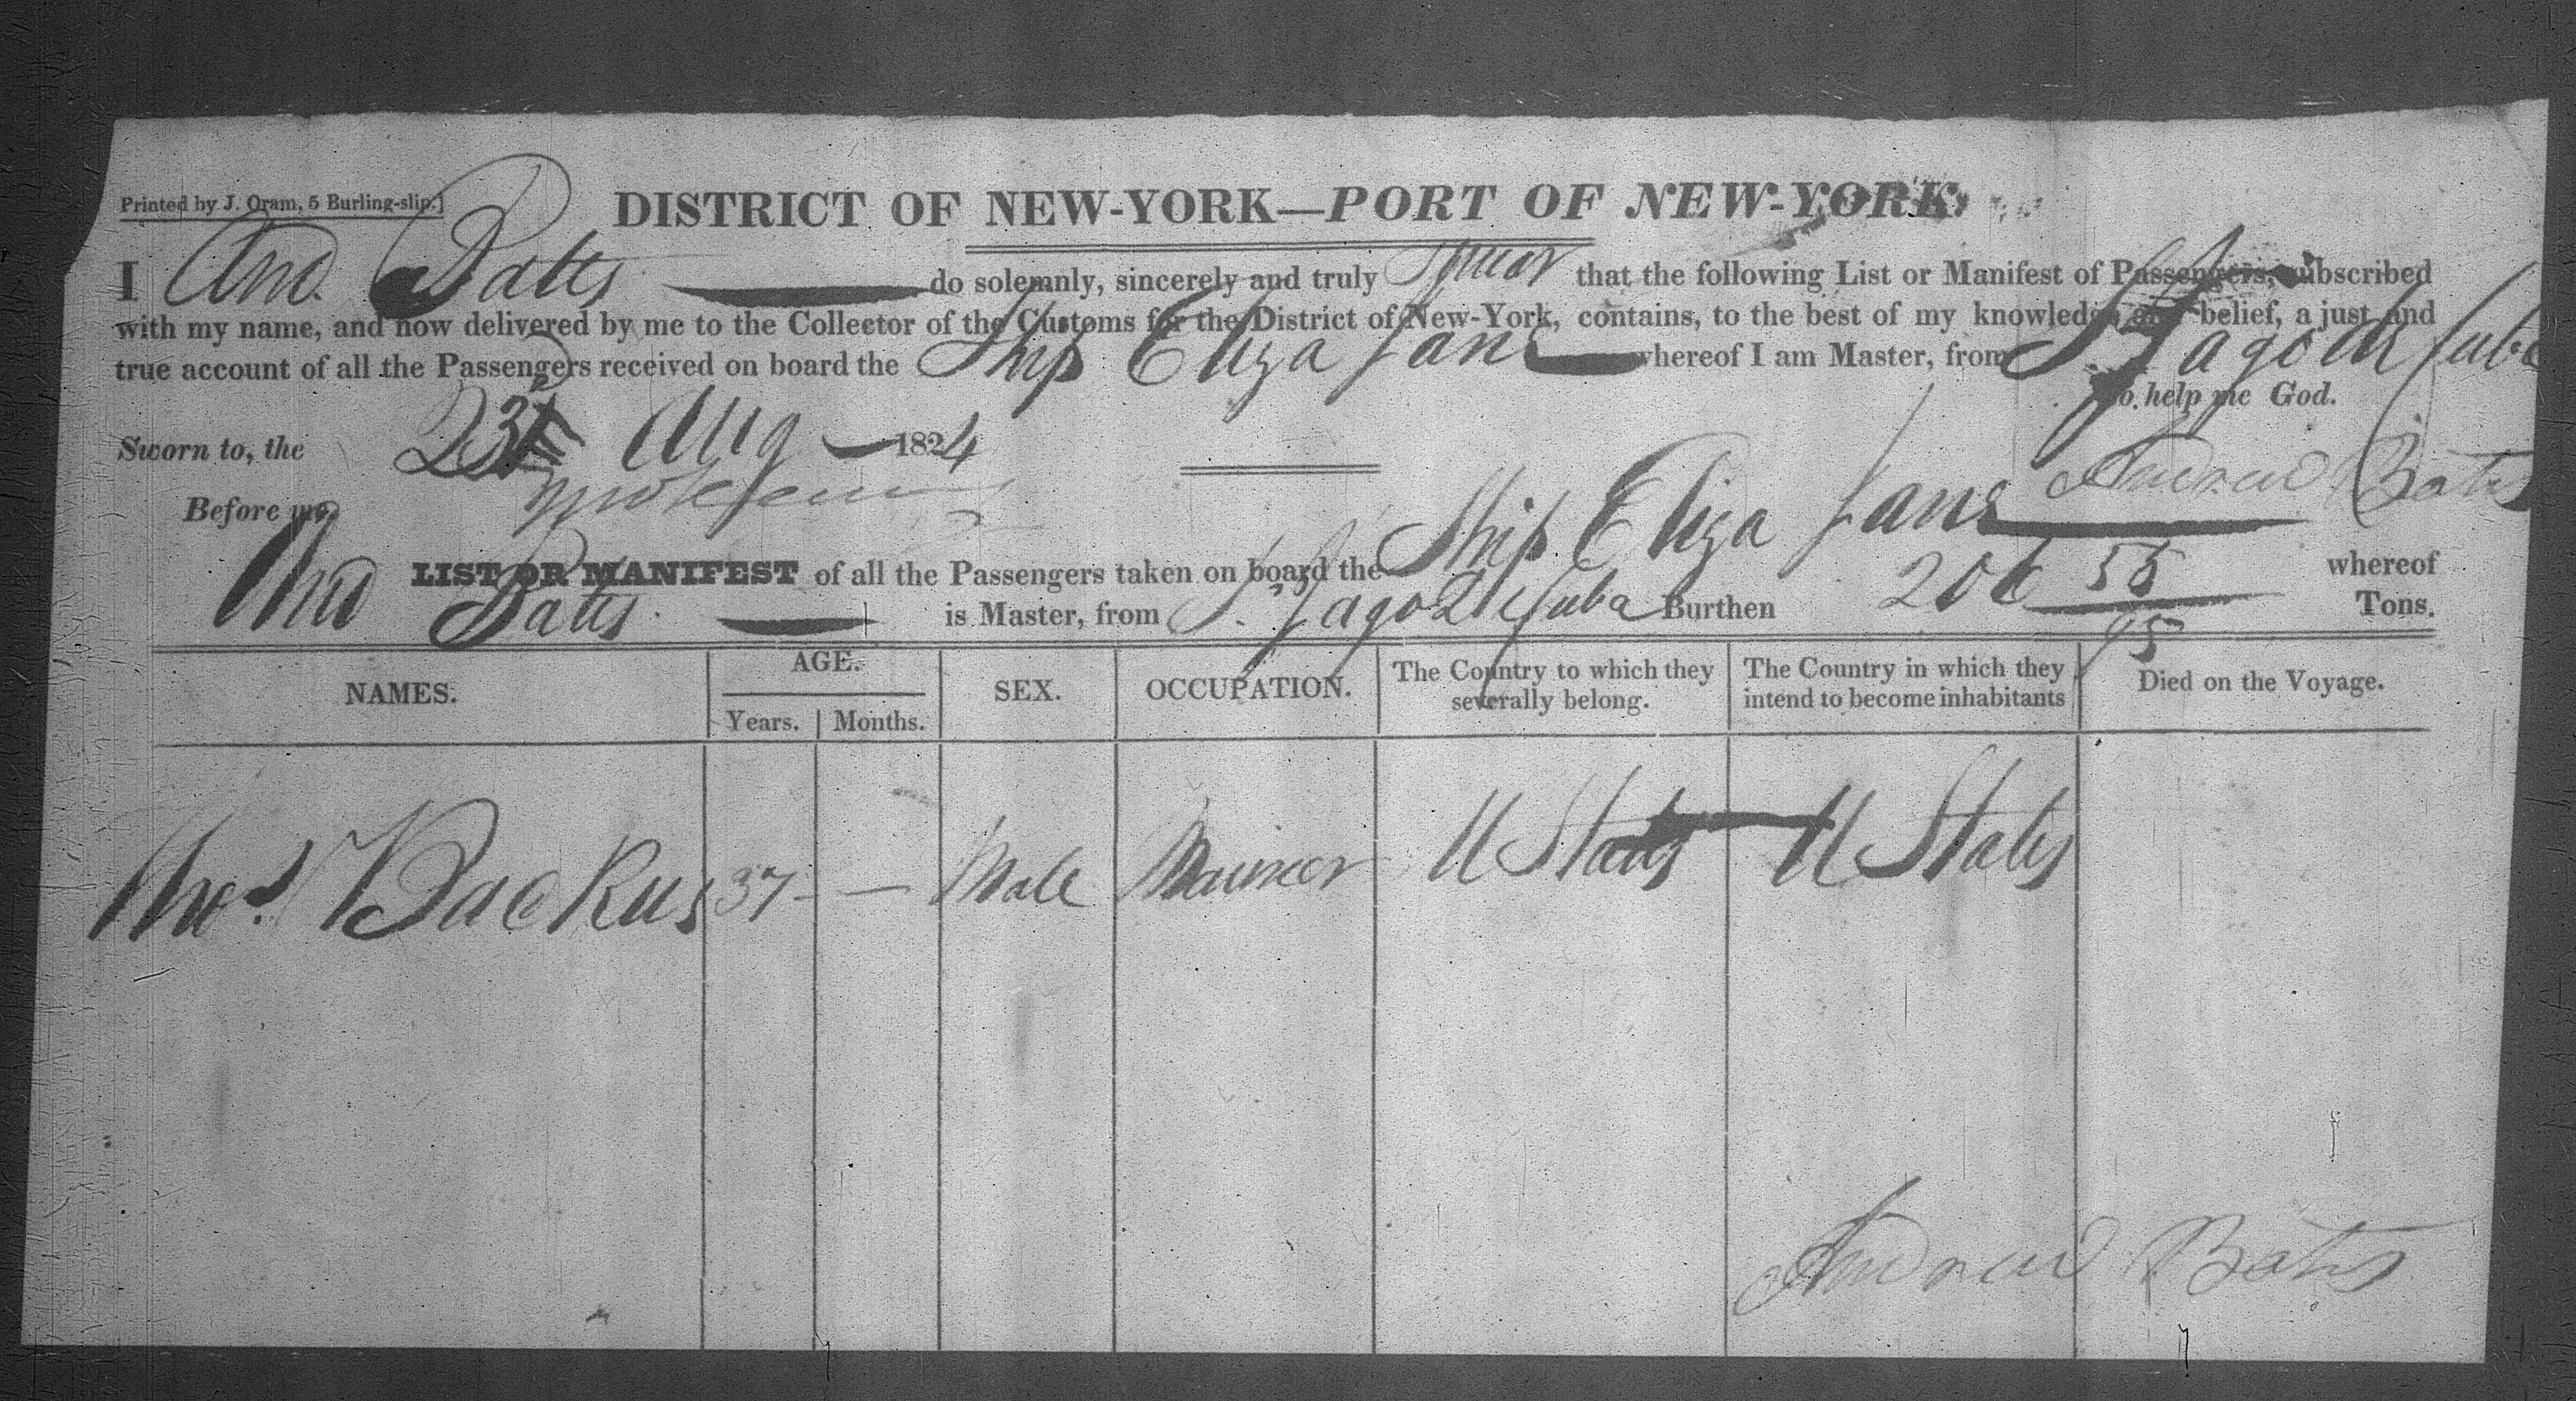 Printed by J. Oram, 5 Burling-slip.]
DISTRICT OF NEW-YORK—PORT OF NEW-YORK.
I And. Bates do solemnly, sincerely and truly swear that the following List or Manifest of Passengers, subscribed
with my name, and now delivered by me to the Collector of the Customs for the District of New-York, contains, to the best of my knowledge and belief, a just and
true account of all the Passengers received on board the Ship Eliza Jane whereof I am Master, from St Jago de Cuba
So help me God.
Sworn to, the 23 Aug 1824
Before me,
Andrew Bates
LIST OR MANIFEST of all the Passengers taken on board the Ship Eliza Jane whereof
And Bates is Master, from St Jago de Cuba Burthen 206 55/95 Tons.
NAMES. AGE. SEX. OCCUPATION. The Country to which they severally belong. The Country in which they intend to become inhabitants Died on the Voyage.
Years. Months.
Thos. Backus 37 — Male Mariner U States — U States
Andrew Bates